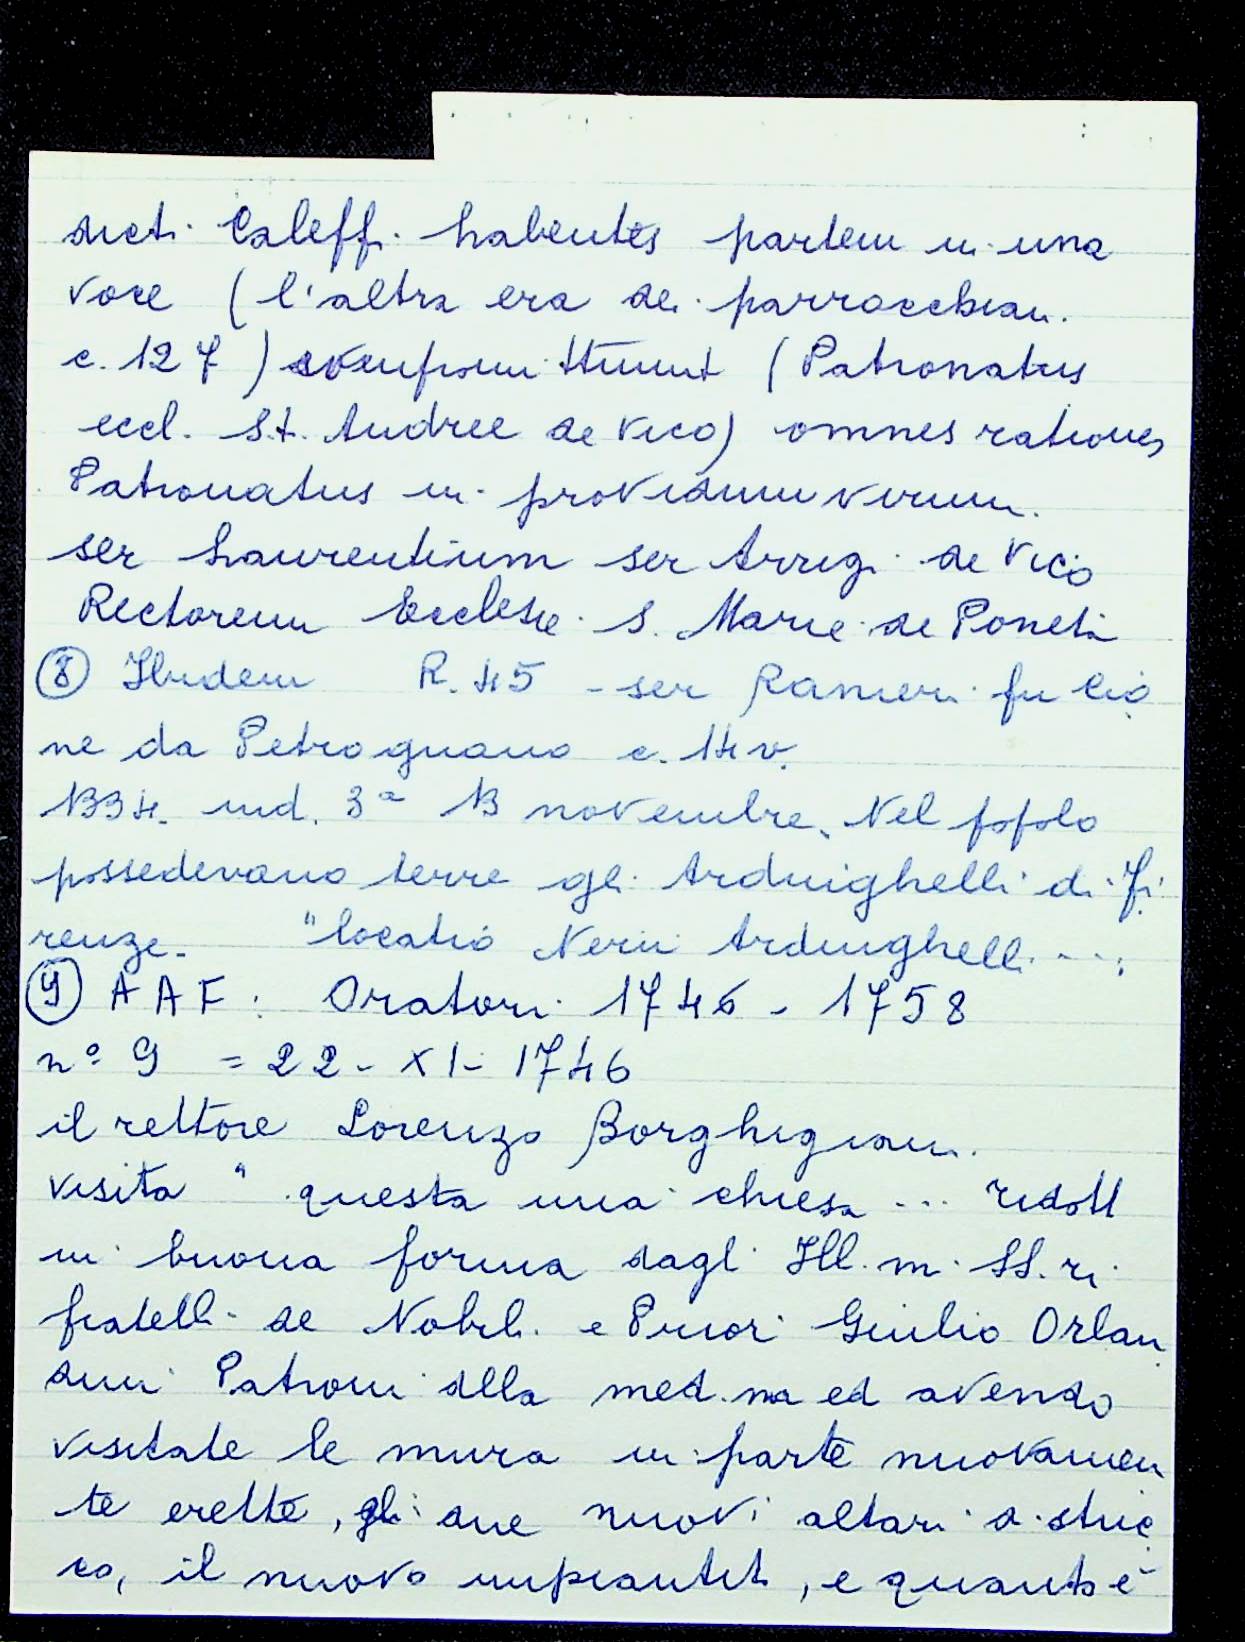 dicti Caleffi habentes partem in una
voce (l'altra era dei parrocchiani
c. 127) compromittunt (Patronatus
eccl. S.t. Andree de Vico) omnes rationes
Patronatus in providum virum
ser Laurentium ser Arrigi de Vico
Rectorem Ecclesie S. Marie de Poneta
⑧ Ibidem R. 45 - ser Ranieri fu Cio
ne da Petrognano c. 14 v.
1334. ind. 3ª 13 novembre. Nel popolo
possedevano terre gli Arduighelli di Fi
renze. "locatio Nerii Ardinghelli ...
⑨ A A F : Oratori 1746 - 1758
n° 9 = 22 - XI - 1746
il rettore Lorenzo Borghigiani
visita " questa mia chiesa ... ridott
in buona forma dagl' Ill.mi SS.ri
fratelli de Nobili e Priori Giulio Orlan
dini Patroni dlla med.ma ed avendo
visitate le mura in parte nuovamen
te erette, gli due nuovi altari a stuc
co, il nuovo impiantito, e quanto è